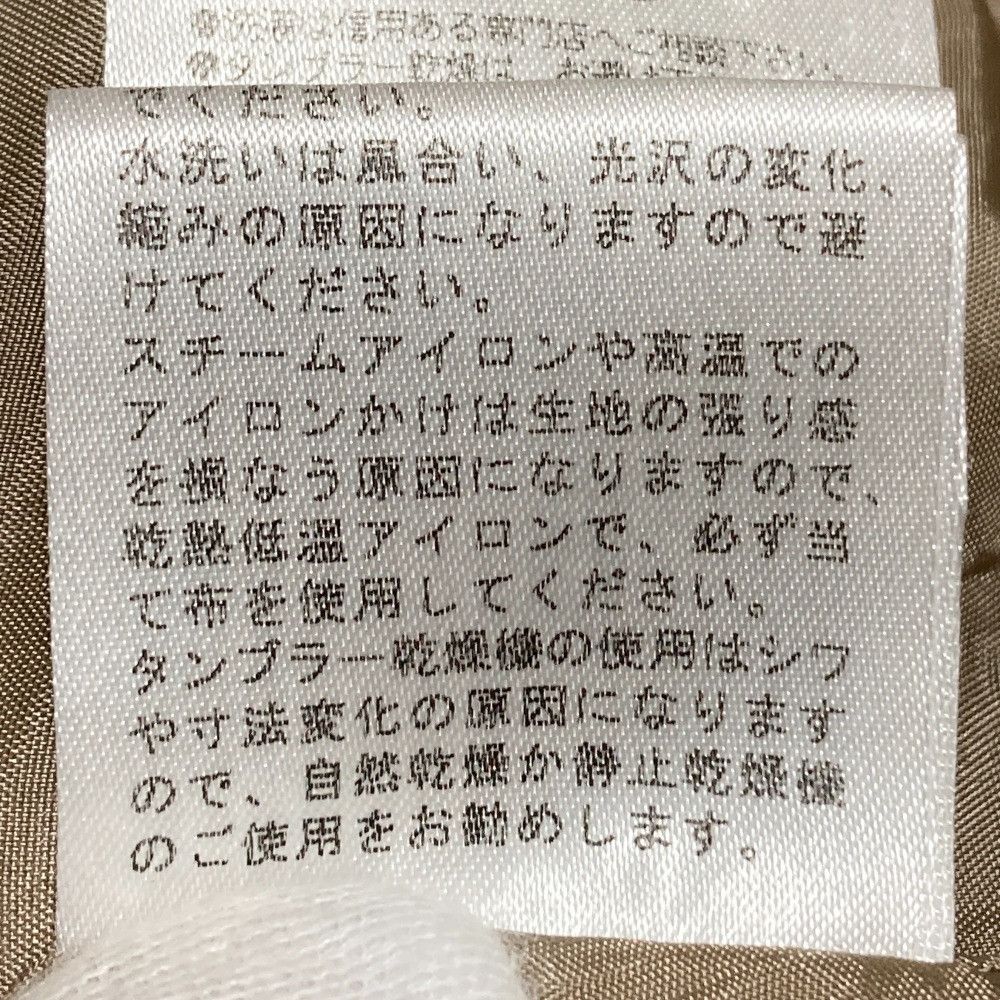 ●洗濯は信用ある専門店へご相談下さい。
●タンブラー乾燥は、お勧め
でください。
水洗いは風合い、光沢の変化、
縮みの原因になりますので避
けてください。
スチームアイロンや高温での
アイロンかけは生地の張り感
を損なう原因になりますので、
乾熱低温アイロンで、必ず当
て布を使用してください。
タンブラー乾燥機の使用はシワ
や寸法変化の原因になります
ので、自然乾燥か静止乾燥機
のご使用をお勧めします。